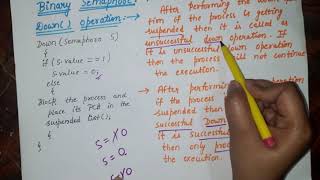 Binary Semaphore
Down() operation:-
Down(Semaphore S)
{
if (S.value == 1)
S.value = 0;
else
{
Block the process and
place its PCB in the
suspended list();
}
S = 1 0
S = 0
S = 1 0
→ After performing the Down
tion if the process is getting
suspended then it is called as
unsuccessful down operation. If
it is unsuccessful down operation
then the process will not
the execution.
→ After performing
if the process
suspended then
successful Down
it is successful
then only proc
the execution.